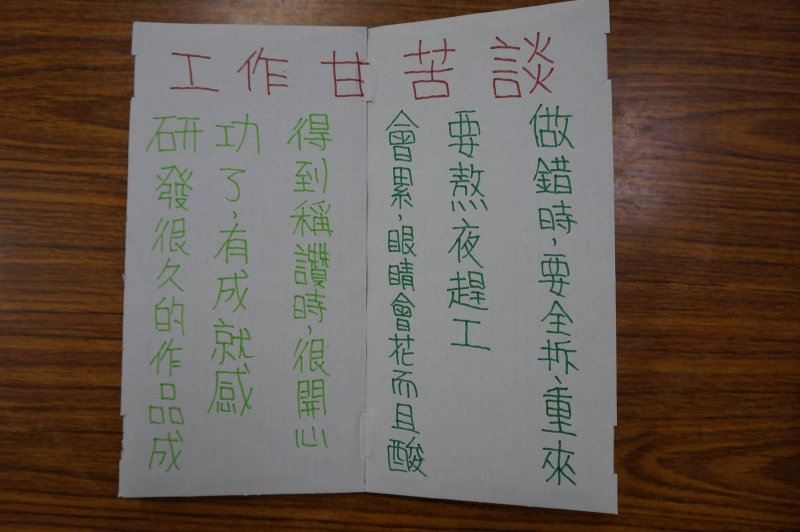 工作甘苦談
研發很久的作品成
功了，有成就感
得到稱讚時，很開心
會累，眼睛會花而且酸
要熬夜趕工
做錯時，要全拆、重來